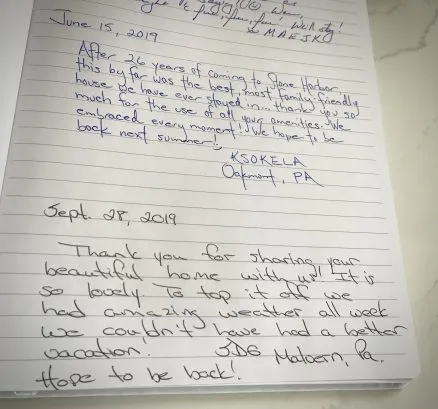 fun, fun, fun! We'll
June 15, 2019
After 26 years of coming to Stone Harbor
this by far was the best, most family friendly
house we have ever stayed in... thank you so
much for the use of all your amenities. We
embraced every moment! We hope to be
back next summer!
KSOKELA
Oakmont, PA
Sept. 28, 2019
Thank you for sharing your
beautiful home with us! It is
so lovely. To top it off we
had amazing weather all week
We couldn't have had a better
vacation. JDG Malvern, Pa.
Hope to be back!